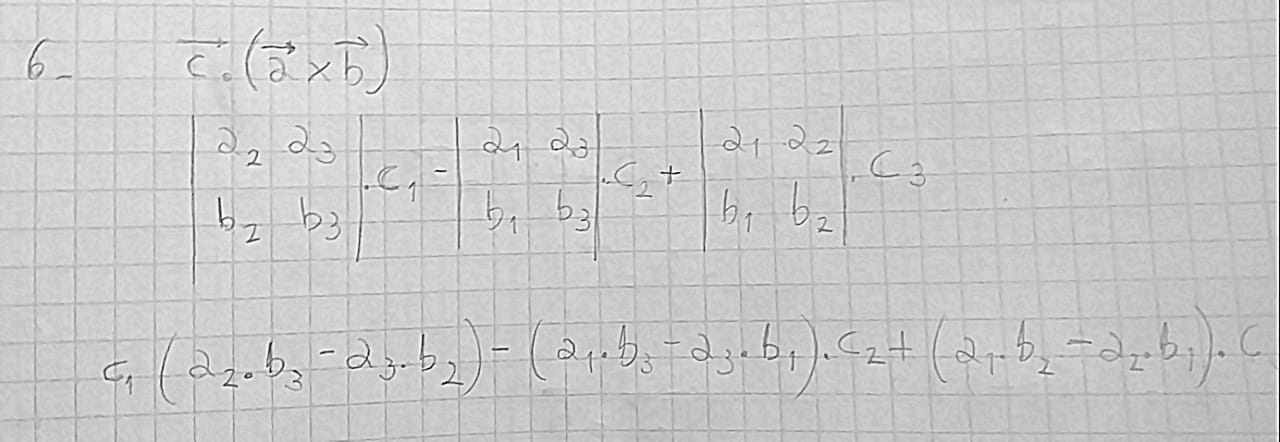 6- c⃗ . (a⃗ × b⃗)
| a₂ a₃ | | a₁ a₃ | | a₁ a₂ |
| b₂ b₃ | . c₁ - | b₁ b₃ | . c₂ + | b₁ b₂ | . c₃
c₁ (a₂ . b₃ - a₃ . b₂) - (a₁ . b₃ - a₃ . b₁) . c₂ + (a₁ . b₂ - a₂ . b₁) . c